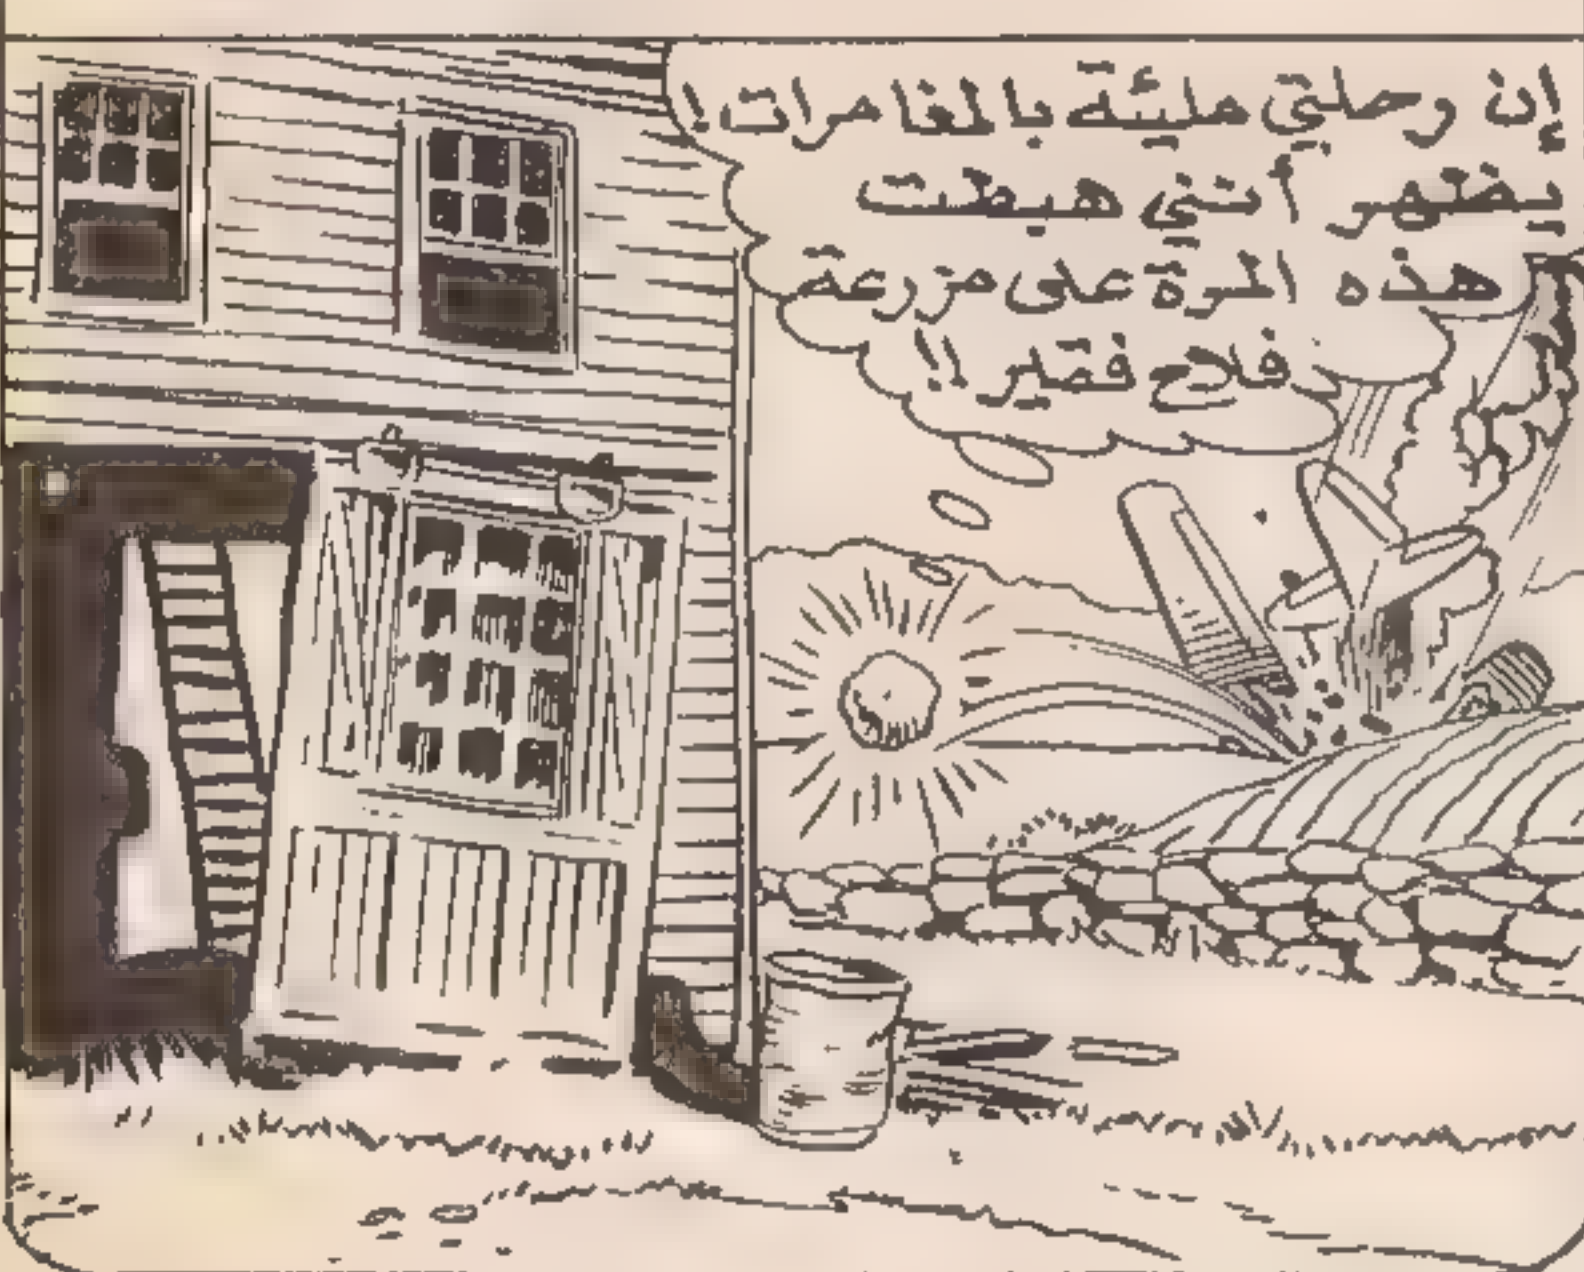 إن رحلتي مليئة بالمغامرات!
يظهر أنني هبطت
هذه المرة على مزرعة
فلاح فقير!!